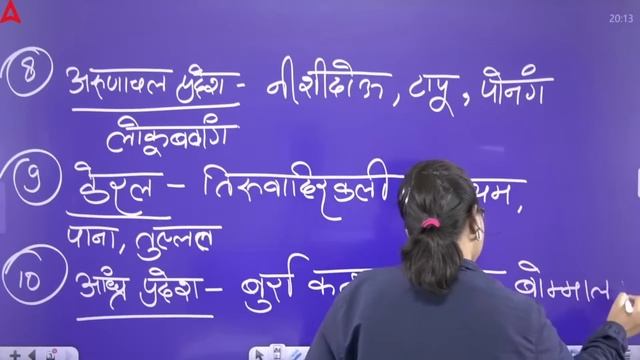 20:13
8 अरुणाचल प्रदेश - नीशीदोऊ, टापू, पोनंग
लोकूबवांग
9 केरल - तिरुवादिरकली यम,
पाना, तुल्लल
10 आंध्र प्रदेश - बुर्रा बोम्माल